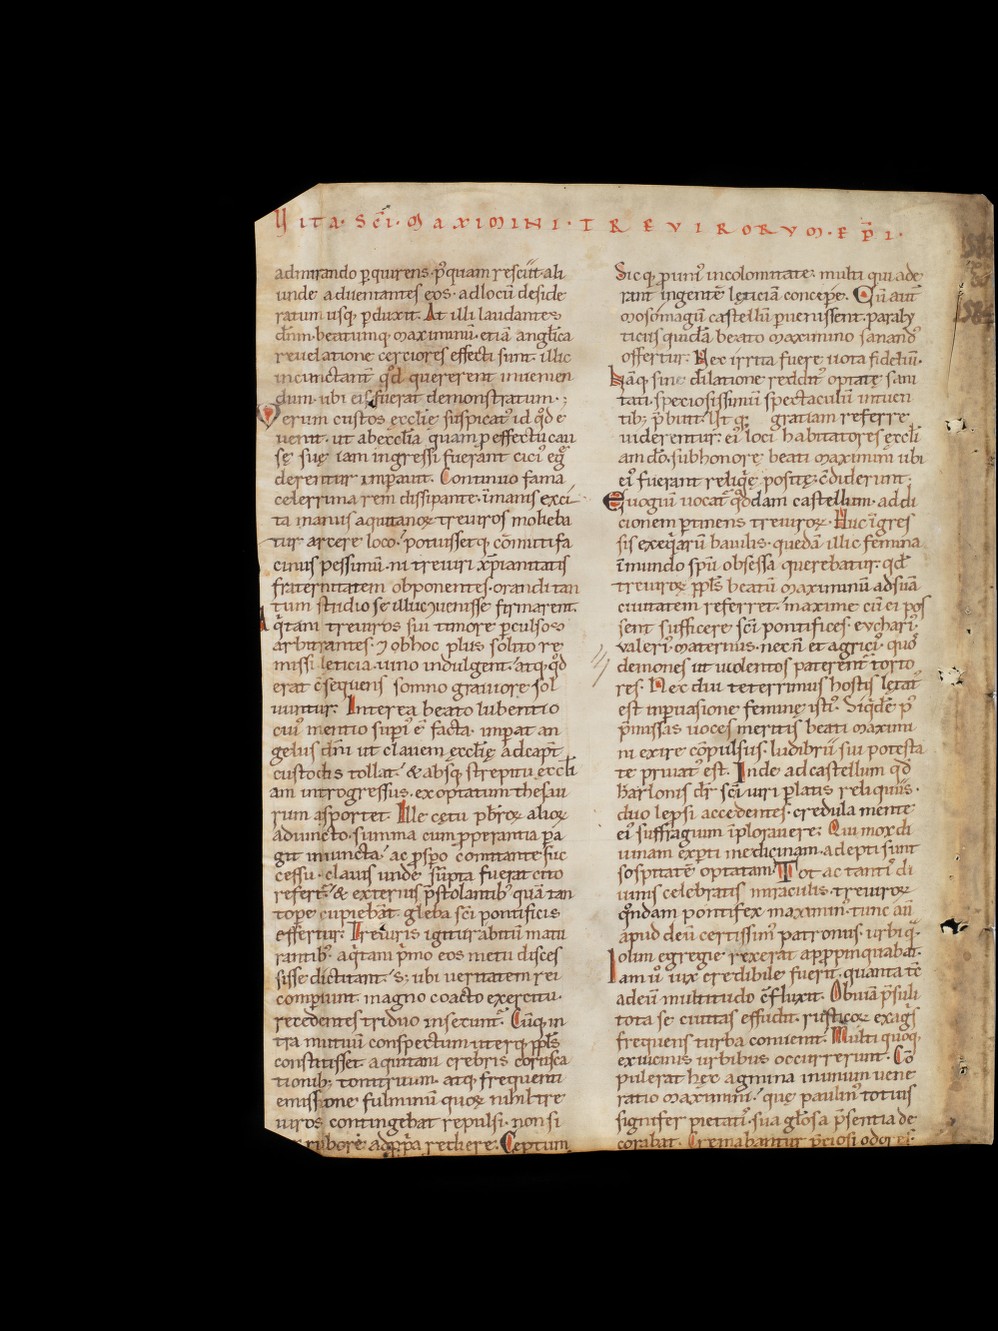 VITA· SC̄I· MAXIMINI· TREVIRORVM· EP̄I·
admirando p̱quirens· p̾quam resciit· ali
unde aduentantes eos· ad locū deside
ratum usq; p̱duxit. At illi laudantes
dn̄m· beatumq; Maximinū· etiā anglica
reuelatione cerciores effecti sunt· illic
incunctant̄ q̾d quererent inuenien
dum· ubi eis fuerat demonstratum·;
Verum custos ęcclię suspicat᾽ id q̾d e
uenit· ut ab ęccl̄ia quam p̱ effectu cau
sę suę iam ingressi fuerant eici᾽ eg̾
derentur impauit. Continuo fama
celerrima rem dissipante· īmanis exci
ta manus aquitanoꝝ treuiros molieba
tur arcere loco· potuissetq; cōmitti fa
cinus pessimū· ni treuiri xp̄ianitatis
fraternitatem obponentes· orandi tan
tum studio se illuc uenisse firmarent.
Aq̾tani treuiros sui timore p̱culsos
arbitrantes· ⁊ ob hoc plus solito re
missi leticia· uino indulgent· atq; q̾d
erat c̄sequens somno grauiore sol
uuntur. Interea beato lubentio
cui᾽ mentio sup̱i᾽ ē facta· imperat an
gelus dn̄i ut clauem ęcclię adeapt̄
custodis tollat· & absq; strepitu ęccli
am introgressus· exoptatum thesau
rum asportet. Ille cętu pb̄roꝝ alioꝝ
adiuncto· summa cum pperantia pa
git iniuncta· ac pspo comitante suc
cessu· clauis unde sūpta fuerat cito
refert̄· & exterius p̄stolantib᾽ quā tan
tope cupiebāt gleba sc̄i pontificis
effertur. Treuiris igitur abitū matu
rantib᾽· aq̾tani p̾mo eos metu disces
sisse dictitant· s; ubi ueritatem rei
comp̱iunt· magno coacto exercitu·
recedentes triduo insecunt̄. Cūq; in
tra mutuū conspectum· uterq; pp̄ls
constitisset· aquitani crebris corusca
tionib; tonitruum· atq; frequenti
emissione fulminū quoꝝ nihil tre
uiros contingebat repulsi· non si
ne rubore ad pp̾a rediere. Ceptum
Sicq; p̱uni᾽ incolomitate· multi qui ade
rant ingentē lęticiā concepe. Cū aut̄
mosomagū castellū p̱uenissent· paraly
ticus quidā beato Maximino sanand᾽
offertur. Nec irrita fuere uota fideliū.
Nāq; sine dilatione reddit᾽ optatę sani
tati· speciosissimū spectaculū intuen
tib; p̄buit. Ut q; gratiam referre
uiderentur· ei᾽ loci habitatores ęccli
am dō· sub honore beati Maximini ubi
ei᾽ fuerant reliq̾ę positę· c̄diderunt.
Euogiū uocat᾽ q̾ddam castellum· addi
cionem ptinens treuiroꝝ. Huc īgres
sis exeq̾arū baiulis· quedā illic femina
īmundo sp̄u obsessa querebatur· qd̄
treuiroꝝ pp̄ls beatū Maximinū ad suā
ciuitatem referret· maxime cū ei pos
sent sufficere sc̄i pontifices· euchari᾽·
ualeri᾽· maternus· necn̄ et agrici᾽· quos
demones ut uiolentos paterent̄ torto
res. Nec diu teterrimus hostis lętat᾽
est in puasione feminę isti᾽. Siq̾dē p᾽
p̄missas uoces meritis beati Maximi
ni exire cōpulsus· ludibriū sui potesta
te priuat᾽ est. Inde ad castellum qd̄
barlonis dr̄ sc̄i uiri platis reliquiis·
duo lepsi accedentes· credula mente
ei᾽ suffragium īplorauere. Qui mox di
uinam exp̱ti medicinam· adepti sunt
sospitatē optatam. Tot ac tanti᾽ di
uinis celebratis miraculis· treuiroꝝ
q̾ndam pontifex maximin᾽· tunc aut̄
apud deū certissim᾽ patronus· urbi q̾
olim egregie rexerat app̾pinquabat.
Iam u᾽ uix credibile fuerit· quanta tē
adeūi multitudo c̄fluxit. Obuiā p̄suli
tota se ciuitas effudit· rusticoꝝ exag̾s
frequens turba conuenit. Multi quoq;
ex uicinis urbibus occurrerunt. Co
pulerat hęc agmina in unum uene
ratio Maximini· quę paulin᾽ totius
signifer pietati᾽· sua gl̄osa p̄sentia de
corabat. Cremabantur p̄ciosi odores·